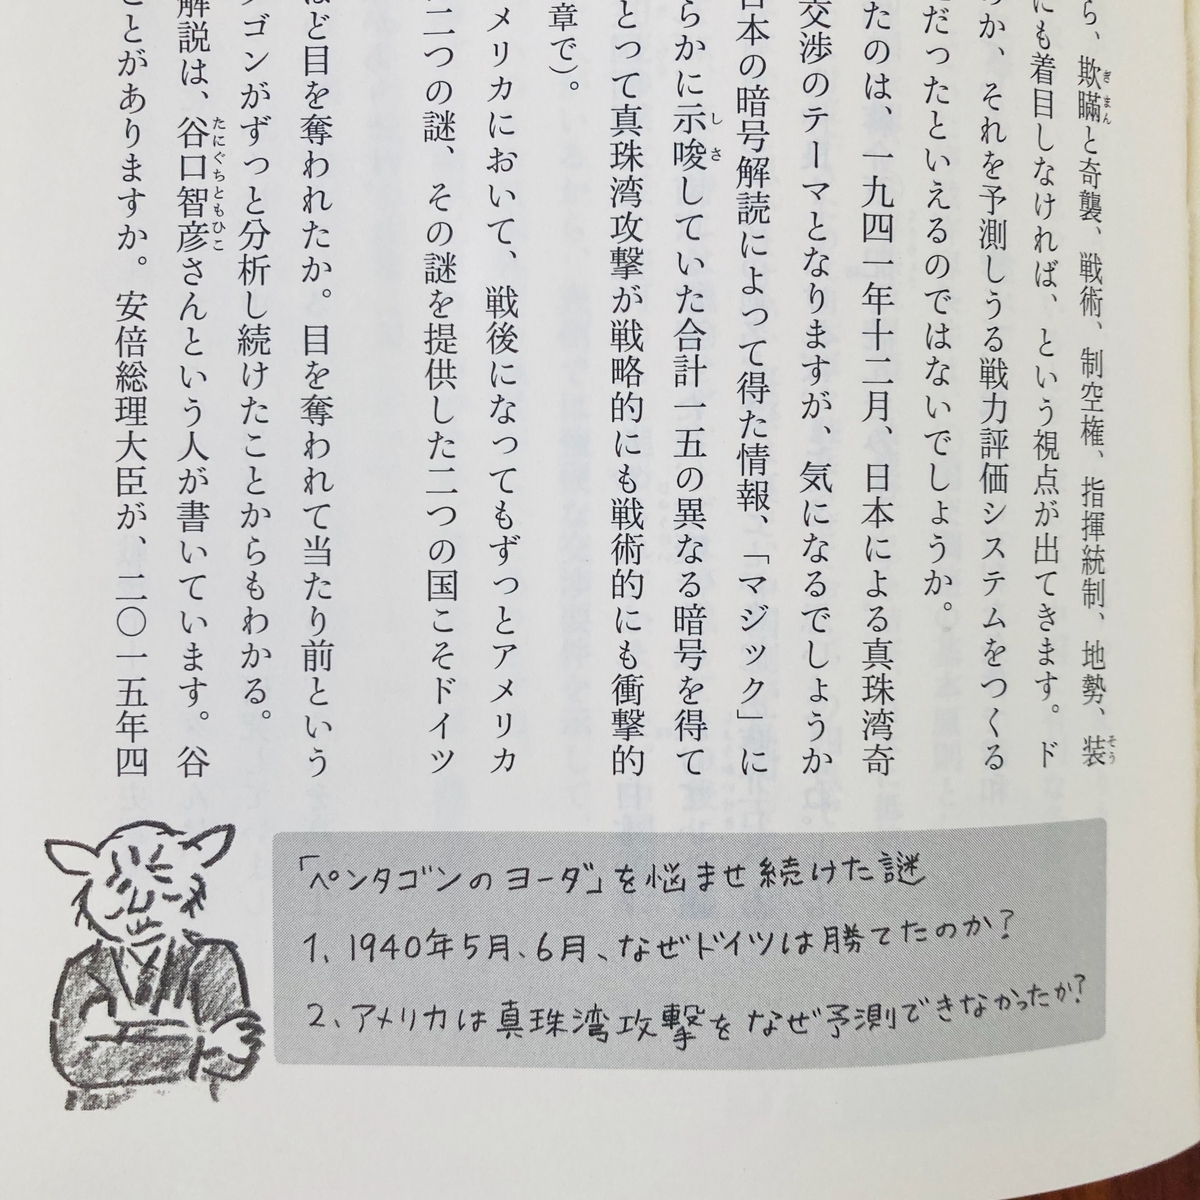 ら、欺瞞と奇襲、戦術、制空権、指揮統制、地勢、装
にも着目しなければ、という視点が出てきます。ド
か、それを予測しうる戦力評価システムをつくる
だったといえるのではないでしょうか。
たのは、一九四一年十二月、日本による真珠湾奇
交渉のテーマとなりますが、気になるでしょうか
本の暗号解読によって得た情報、「マジック」に
らかに示唆していた合計一五の異なる暗号を得て
とって真珠湾攻撃が戦略的にも戦術的にも衝撃的
章で）。
メリカにおいて、戦後になってもずっとアメリカ
二つの謎、その謎を提供した二つの国こそドイツ
ほど目を奪われたか。目を奪われて当たり前という
ゴンがずっと分析し続けたことからもわかる。
解説は、谷口智彦さんという人が書いています。谷
ことがありますか。安倍総理大臣が、二〇一五年四
「ペンタゴンのヨーダ」を悩ませ続けた謎
1、1940年5月、6月、なぜドイツは勝てたのか？
2、アメリカは真珠湾攻撃をなぜ予測できなかったか？